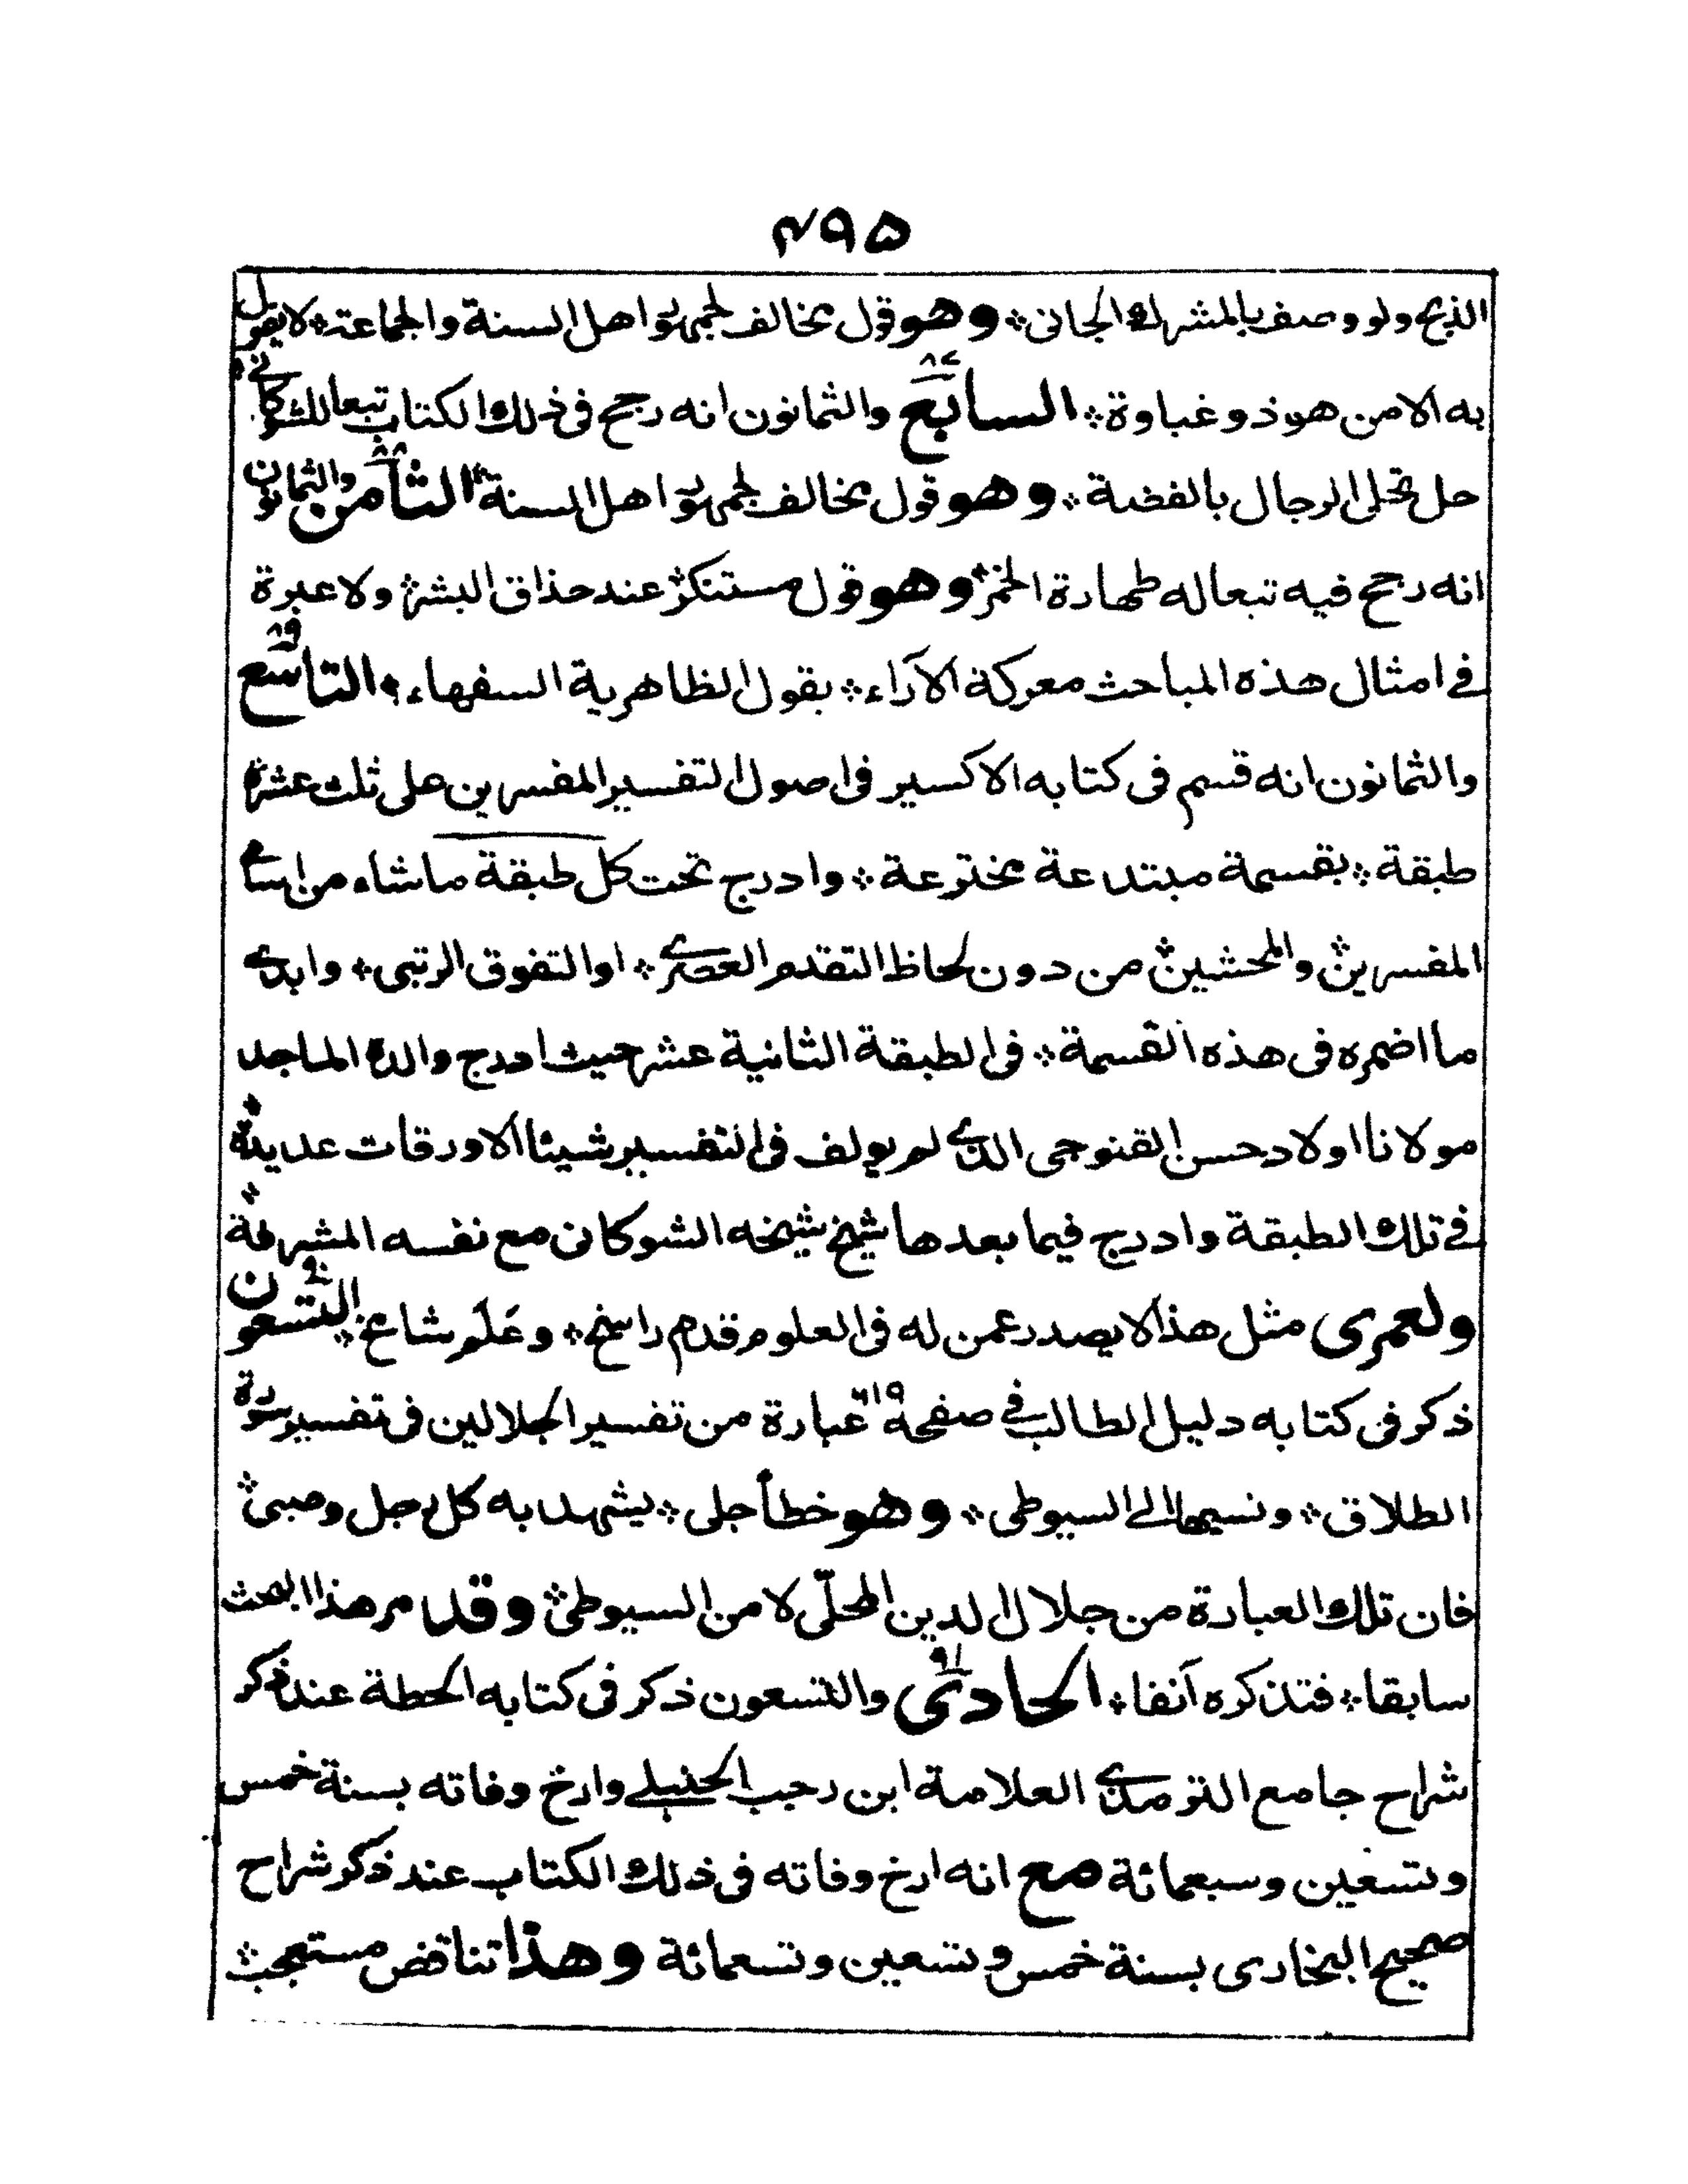 ۴۹۵
الذبح ولو وصف بالمشرك الجانی؞ وهو قول مخالف لجمهور اهل السنة والجماعة؞ لا يقول
به الا من هو ذو غباوة؞ السابع ۸۷ والثمانون انه رجح فی ذلك الكتاب تبعا للشوكانے؞
حل تحلی الرجال بالفضة؞ وهو قول مخالف لجمهور اهل السنة؞ الثامن ۸۸ والثمانون
انه رجح فيه تبعا له طهارة الخمر؞ وهو قول مستنكر؞ عند حذاق البشر؞ ولا عبرة
فے امثال هذه المباحث معركة الآراء؞ بقول الظاهرية السفهاء؞ التاسع ۸۹
والثمانون انه قسم فی كتابه الاكسير فی اصول التفسير المفسرين علی ثلث عشرة
طبقة؞ بقسمة مبتدعة مخترعة؞ وادرج تحت كل طبقة ما شاء من اسامے
المفسرين؞ والمحشين؞ من دون لحاظ التقدم العصرے؞ او التفوق الرتبی؞ وابدے
ما اضمره فی هذه القسمة؞ فی الطبقة الثانية عشر حيث ادرج والده الماجد
مولانا اولاد حسن القنوجی الذے لم يولف فی التفسير شيئا الا ورقات عديدة؞
فے تلك الطبقة وادرج فيما بعدها شيخ شيخه الشوكانی مع نفسه المشرفة؞
ولعمری مثل هذا لا يصدر عمن له فی العلوم قدم راسخ؞ وعَلَم شامخ؞ التسعون ۹۰
ذكر فی كتابه دليل الطالب فے صفحة ۶۱۹ عبارة من تفسير الجلالين فی تفسير سورة
الطلاق؞ ونسبها الے السيوطی؞ وهو خطأ جلی؞ يشهد به كل رجل وصبی؞
فان تلك العبارة من جلال الدين المحلّی لا من السيوطی؞ وقد مر هذا البحث
سابقا؞ فتذكره آنفا؞ الحادی ۹۱ والتسعون ذكر فی كتابه الحطة عند ذكر
شراح جامع الترمذے العلامة ابن رجب الحنبلے وارخ وفاته بسنة خمس
وتسعين وسبعمائة مع انه ارخ وفاته فی ذلك الكتاب عند ذكر شراح
صحيح البخاری بسنة خمس وتسعين وتسعمائة وهذا تناقض مستعجب؞